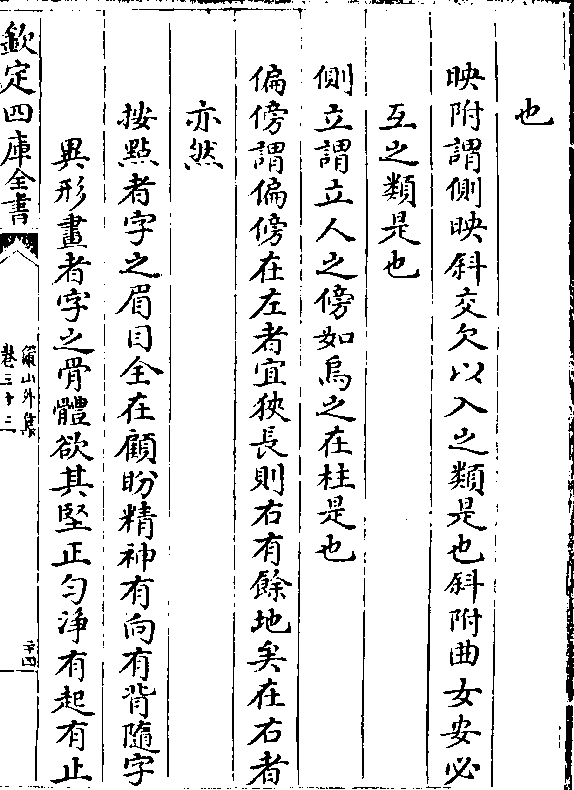 也
映附謂側映斜交欠以入之類是也斜附曲女安必
互之類是也
側立謂立人之傍如鳥之在柱是也
偏傍謂偏傍在左者宜狹長則右有餘地矣在右者
亦然
按點者字之眉目全在顧盼精神有向有背隨字
異形畫者字之骨體欲其堅正勻淨有起有止
欽定四庫全書
山外集
卷三十三
二十四